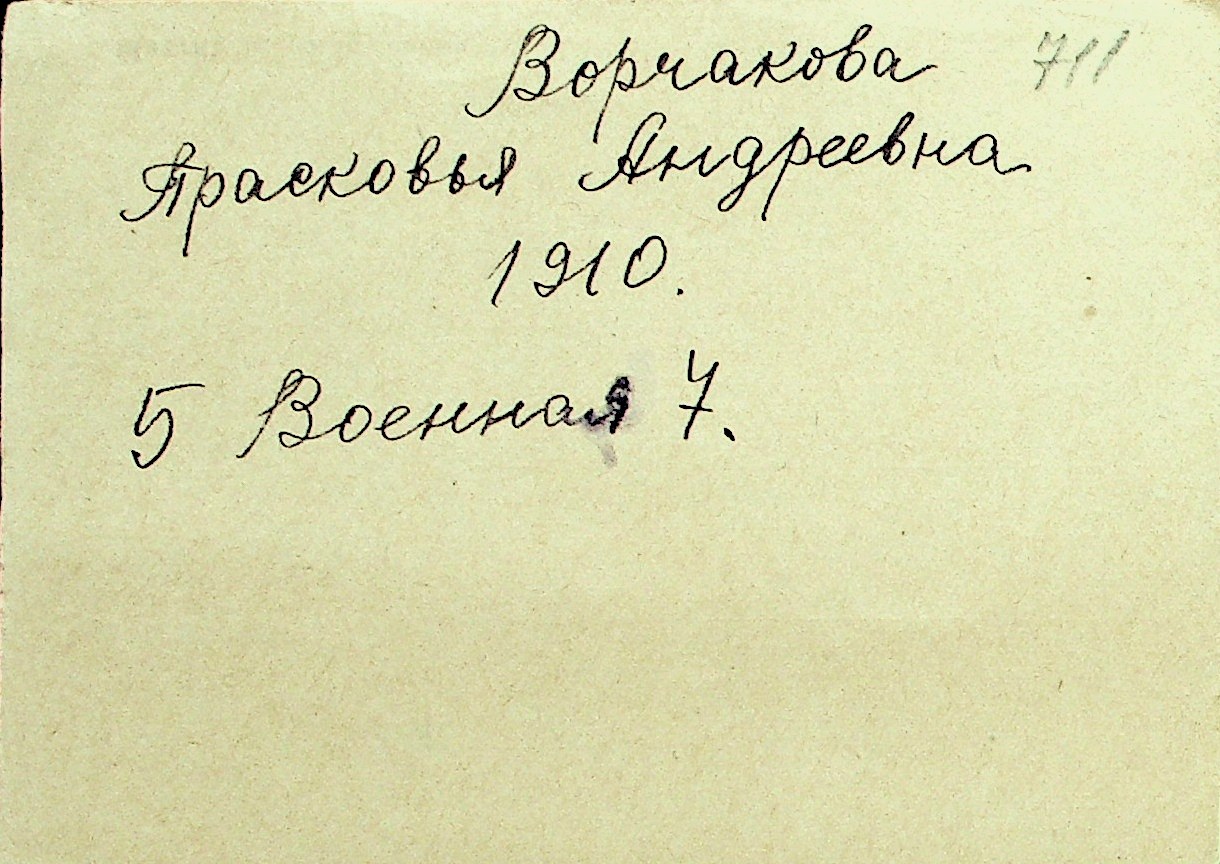 Ворчакова 711
Прасковья Андреевна
1910.
5 Военная 7.